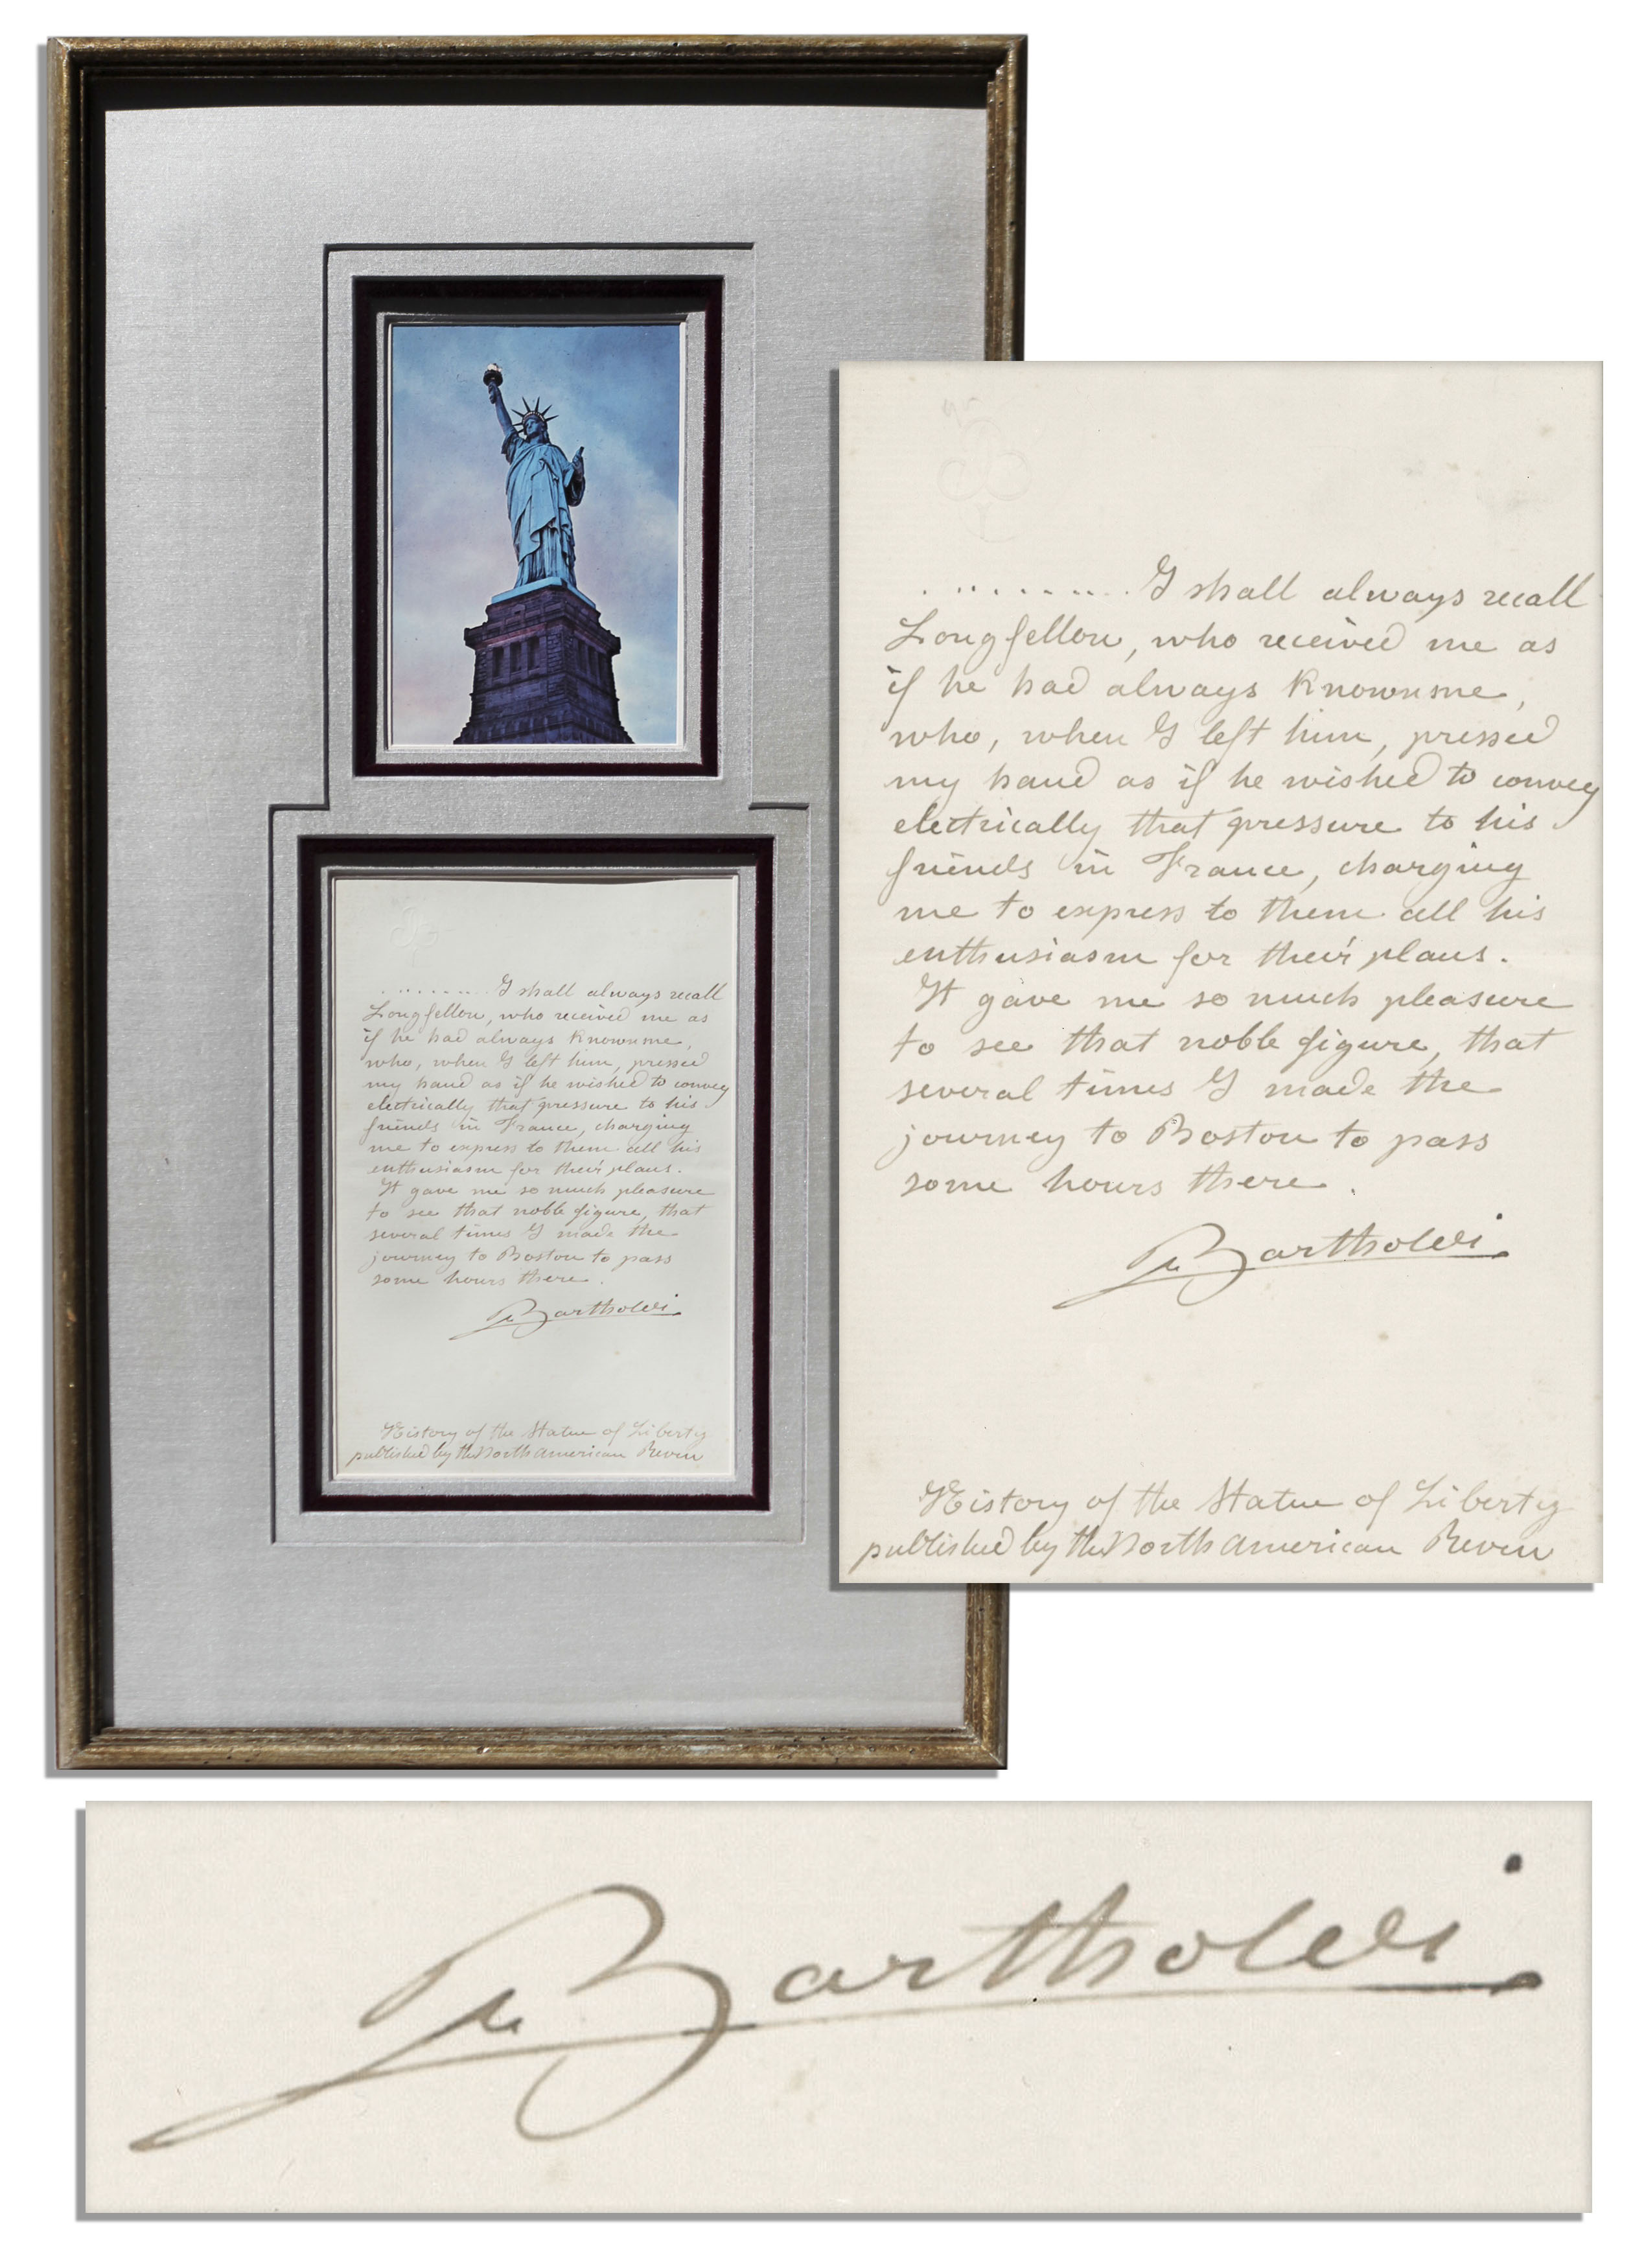 . . . . . . . . . . . I shall always recall
Longfellow, who received me as
if he had always known me,
who, when I left him, pressed
my hand as if he wished to convey
electrically that pressure to his
friends in France, charging
me to express to them all his
enthusiasm for their plans.
It gave me so much pleasure
to see that noble figure, that
several times I made the
journey to Boston to pass
some hours there.
Bartholdi
History of the Statue of Liberty
published by the North American Revew
. . . . . . . . . . . I shall always recall
Longfellow, who received me as
if he had always known me,
who, when I left him, pressed
my hand as if he wished to convey
electrically that pressure to his
friends in France, charging
me to express to them all his
enthusiasm for their plans.
It gave me so much pleasure
to see that noble figure, that
several times I made the
journey to Boston to pass
some hours there.
Bartholdi
History of the Statue of Liberty
published by the North American Revew
Bartholdi